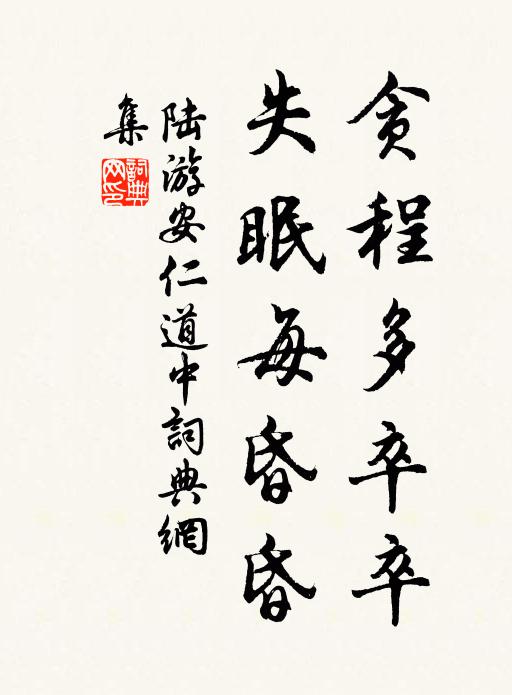 贪程多卒卒
失眠每昏昏
陆游安仁道中詞典網
集
詞典网印